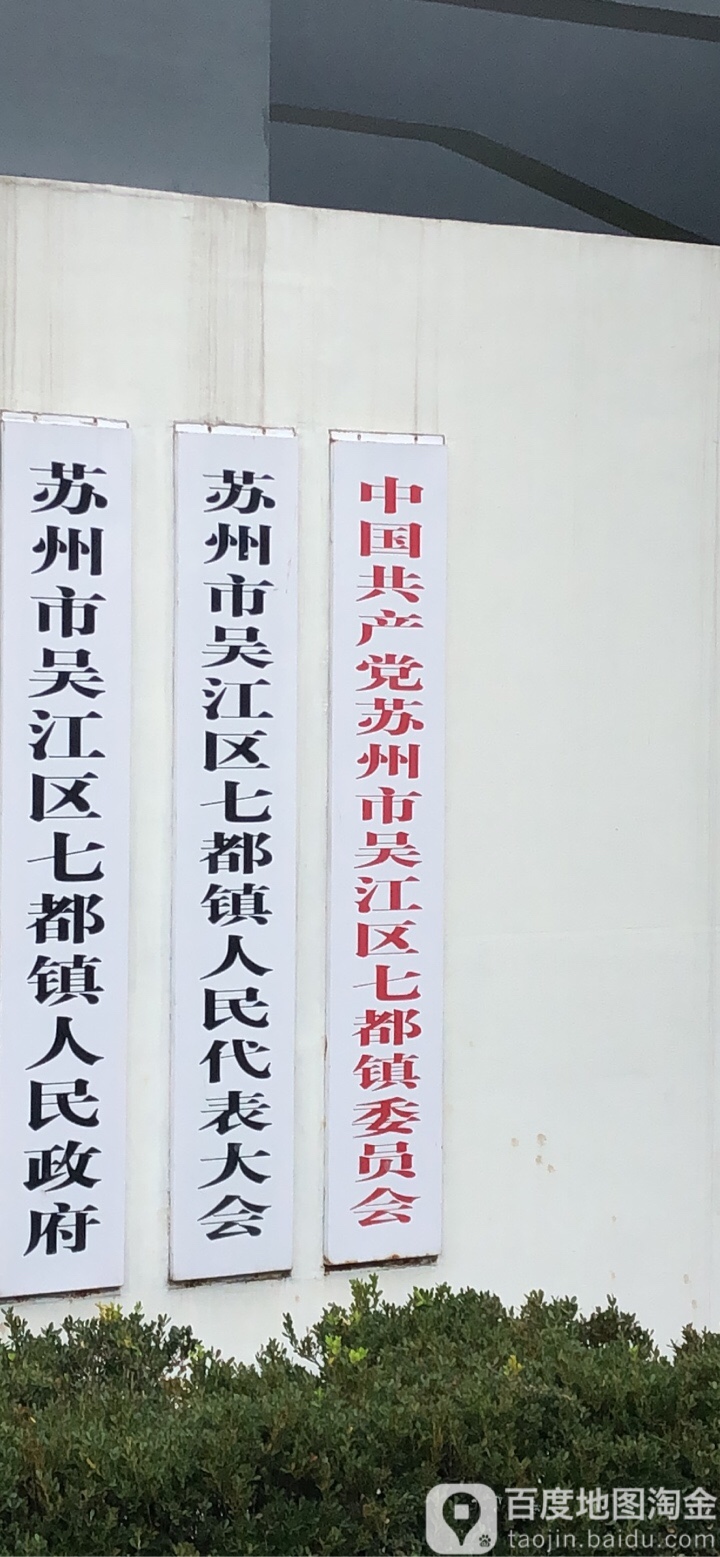 中国共产党苏州市吴江区七都镇委员会
苏州市吴江区七都镇人民代表大会
苏州市吴江区七都镇人民政府
百度地图淘金
taojin.baidu.com